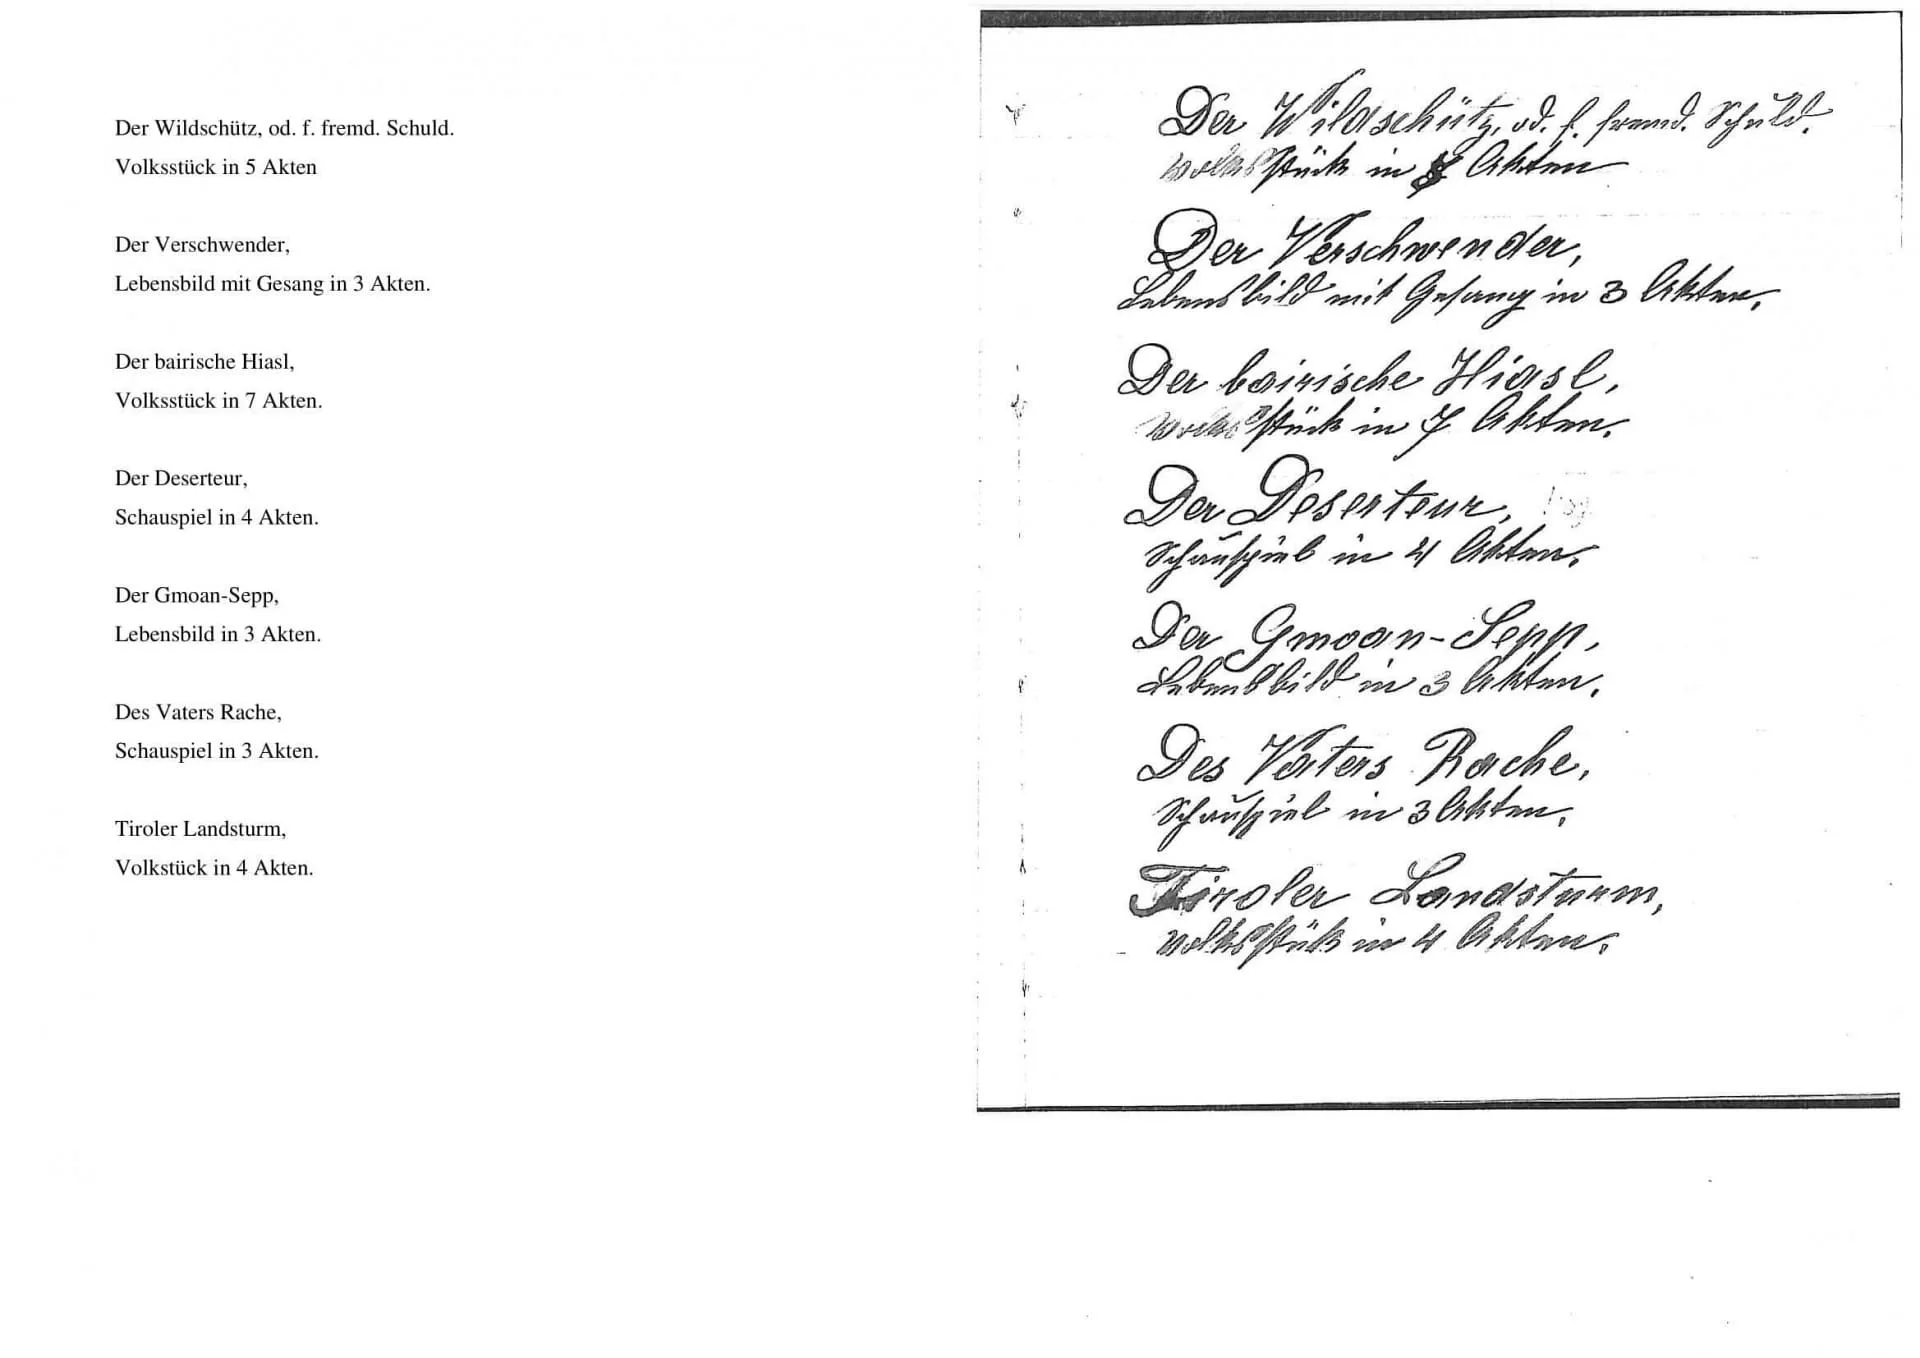 Der Wildschütz, od. f. fremd. Schuld.
Volksstück in 5 Akten
Der Verschwender,
Lebensbild mit Gesang in 3 Akten.
Der bairische Hiasl,
Volksstück in 7 Akten.
Der Deserteur,
Schauspiel in 4 Akten.
Der Gmoan-Sepp,
Lebensbild in 3 Akten.
Des Vaters Rache,
Schauspiel in 3 Akten.
Tiroler Landsturm,
Volkstück in 4 Akten.
Der Wildschütz, od. f. fremd. Schuld.
Volksstück in Akten
Der Verschwender,
Lebensbild mit Gesang in 3 Akten.
Der bairische Hiasl,
Volksstück in 7 Akten.
Der Deserteur,
Schauspiel in 4 Akten.
Der Gmoan-Sepp,
Lebensbild in 3 Akten.
Des Vaters Rache,
Schauspiel in 3 Akten.
Tiroler Landsturm,
Volksstück in 4 Akten.